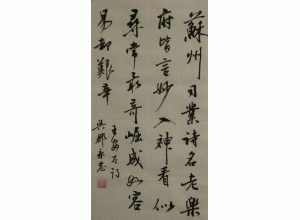 蘇州司業詩名老樂
府皆言妙入神看似
尋常最奇崛成如容
易却艱辛
王安石詩